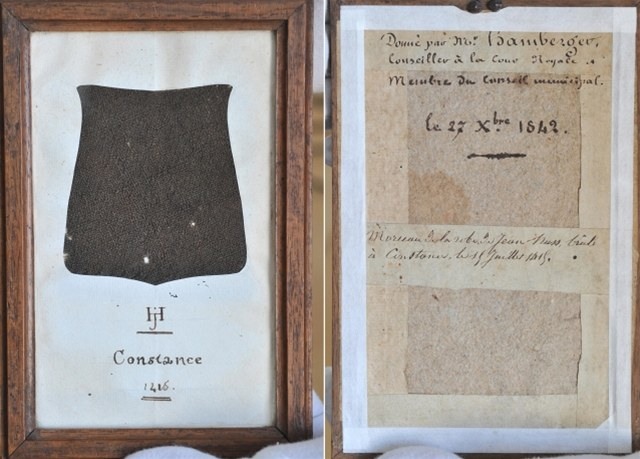 HJ
Constance
1216.
Donné par Mr. Hamberger,
Conseiller à la Cour Royale.
Membre du Conseil municipal.
le 27 Xbre 1842.
Morceau de la robe de Jean Huss, brulé
à Constance, le 15 Juillet 1415.